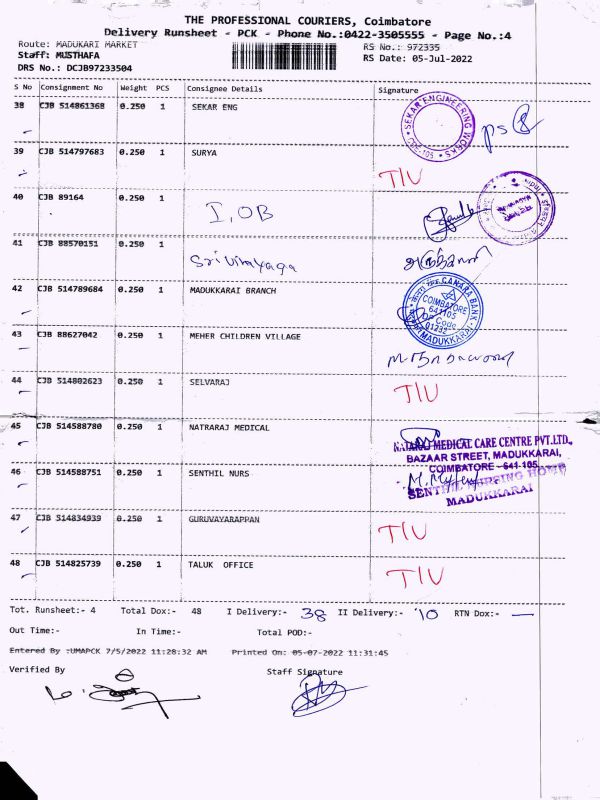 THE PROFESSIONAL COURIERS, Coimbatore
Delivery Runsheet - PCK - Phone No.:0422-3505555 - Page No.:4
Route: MADUKARI MARKET RS No.: 972335
Staff: MUSTHAFA RS Date: 05-Jul-2022
DRS No.: DCJB97233504
S No Consignment No Weight PCS Consignee Details Signature
38 CJB 514861368 0.250 1 SEKAR ENG
SEKAR ENGINEERING WORKS
39 CJB 514797683 0.250 1 SURYA T/U
40 CJB 89164 0.250 1 I.OB
41 CJB 88570151 0.250 1 Sri Vinayaga
42 CJB 514789684 0.250 1 MADUKKARAI BRANCH
CANARA BANK
COIMBATORE
641105
DP Code
01232
MADUKKARAI
43 CJB 88627042 0.250 1 MEHER CHILDREN VILLAGE
44 CJB 514802623 0.250 1 SELVARAJ T/U
45 CJB 514588780 0.250 1 NATRARAJ MEDICAL
NATARAJ MEDICAL CARE CENTRE PVT.LTD.,
BAZAAR STREET, MADUKKARAI,
COIMBATORE - 641 105
46 CJB 514588751 0.250 1 SENTHIL NURS
SENTHIL NURSING HOME
MADUKKARAI
47 CJB 514834939 0.250 1 GURUVAYARAPPAN T/U
48 CJB 514825739 0.250 1 TALUK OFFICE T/U
Tot. Runsheet:- 4 Total Dox:- 48 I Delivery:- 38 II Delivery:- 10 RTN Dox:- —
Out Time:- In Time:- Total POD:-
Entered By :UMAPCK 7/5/2022 11:28:32 AM Printed On: 05-07-2022 11:31:45
Verified By Staff Signature